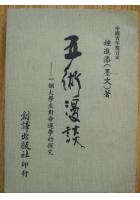 中國青年叢書之
鍾進添(墨文)著
五術漫談
——一個大學生對命運學的探究
創譯出版社 印行